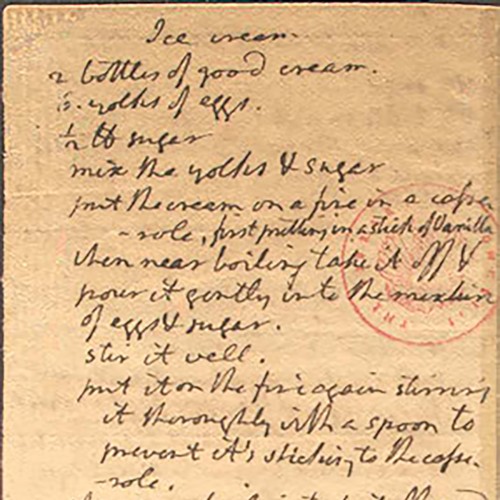 Ice cream.
2 bottles of good cream.
6. yolks of eggs.
½ ℔ sugar
mix the yolks & sugar
put the cream on a fire in a casse
-role, first putting in a stick of Vanilla
when near boiling take it off &
pour it gently into the mixture
of eggs & sugar.
stir it well.
put it on the fire again stirring
it thoroughly with a spoon to
prevent it's sticking to the casse-
-role.